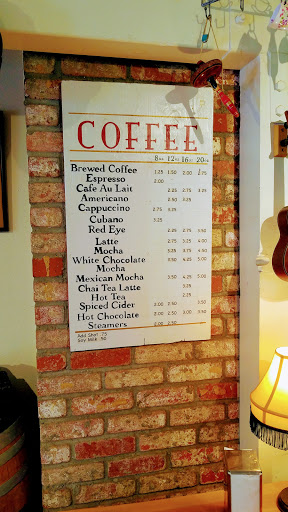 COFFEE
8oz 12oz 16oz 20oz
Brewed Coffee 1.25 1.50 2.00 2.75
Espresso 2.00
Cafe Au Lait 2.25 2.75 3.25
Americano 2.50 3.25
Cappuccino 2.75 3.25
Cubano 3.25
Red Eye 2.25 2.75 3.25
Latte 2.75 3.25 4.00
Mocha 3.25 3.75 4.50
White Chocolate 3.50 4.25 5.00
Mocha
Mexican Mocha 3.50 4.25 5.00
Chai Tea Latte 3.25
Hot Tea 2.25
Spiced Cider 2.00 2.50 3.50
Hot Chocolate 2.00 2.50 3.00 3.50
Steamers 2.00 2.50
Add Shot .75
Soy Milk .50